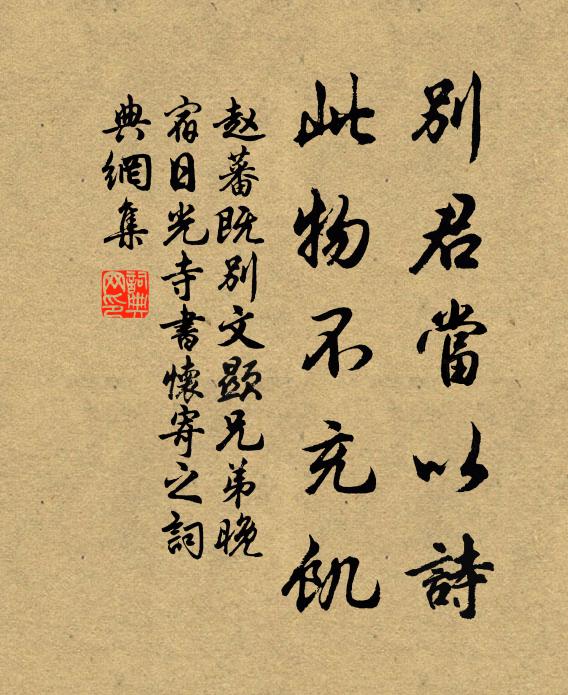 別君當以詩
此物不充飢
赵蕃既別文顯兄弟晚
宿日光寺書懷寄之詞
典網集
詞典网印